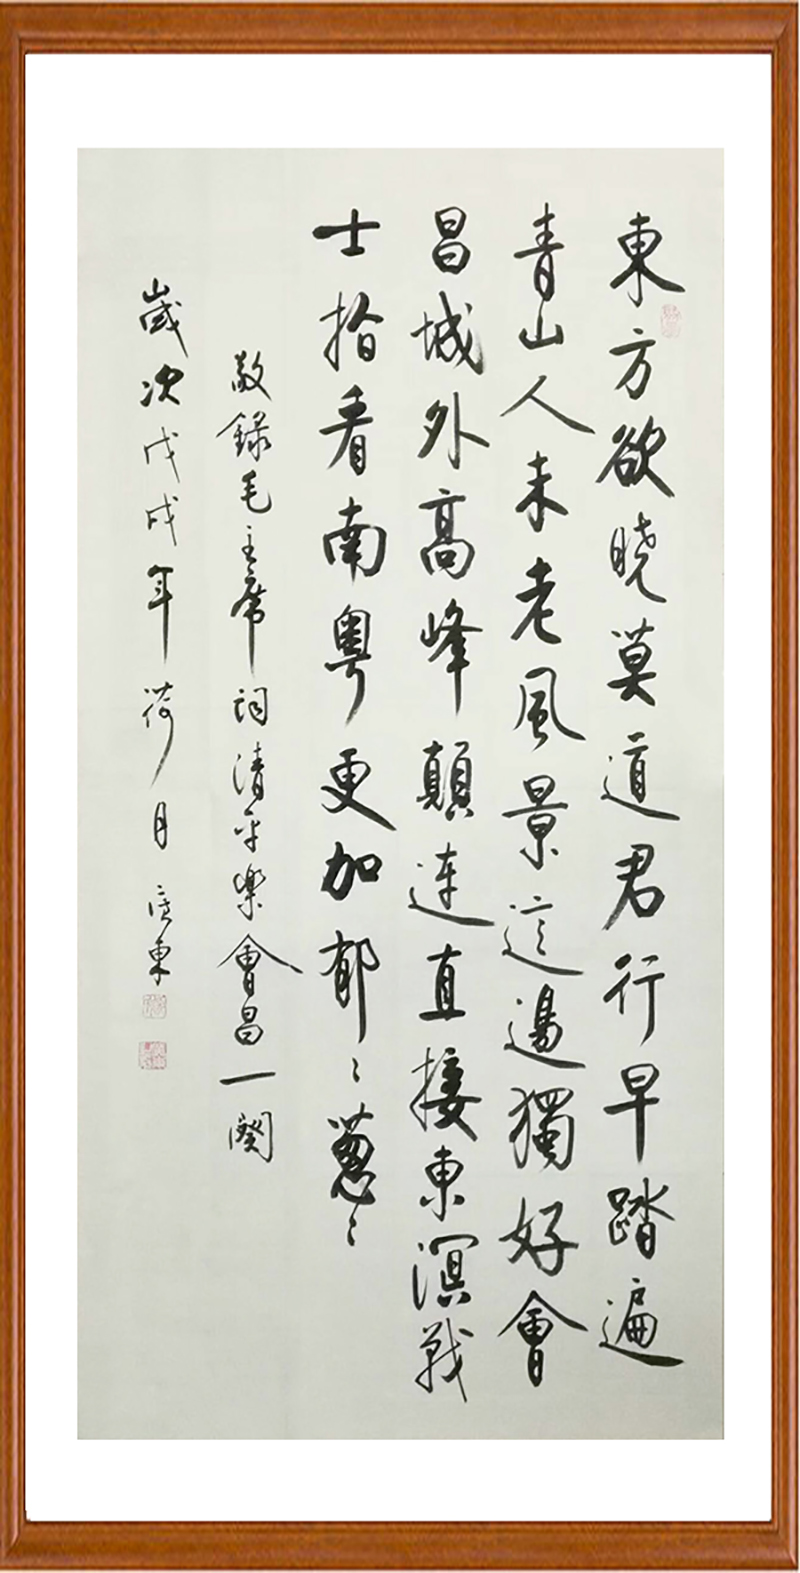 東方欲晓莫道君行早踏遍
青山人未老風景這邊獨好會
昌城外高峰顛連直接東溟戰
士指看南粤更加郁〻蔥〻
敬録毛主席詞清平樂會昌一闋
歲次戊戌年荷月東